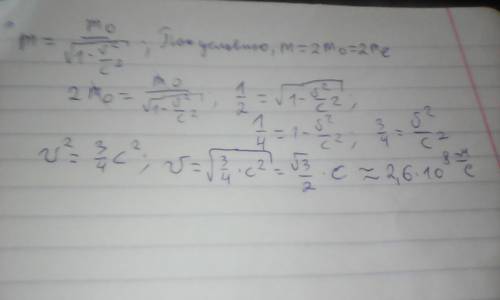 m = m₀/√(1-v²/c²); По условию, m=2m₀=2mₑ
2m₀ = m₀/√(1-v²/c²); 1/2 = √(1-v²/c²);
1/4 = 1-v²/c²; 3/4 = v²/c²
v² = 3/4 c²; v = √(3/4·c²) = √3/2·c ≈ 2,6·10⁸ м/с